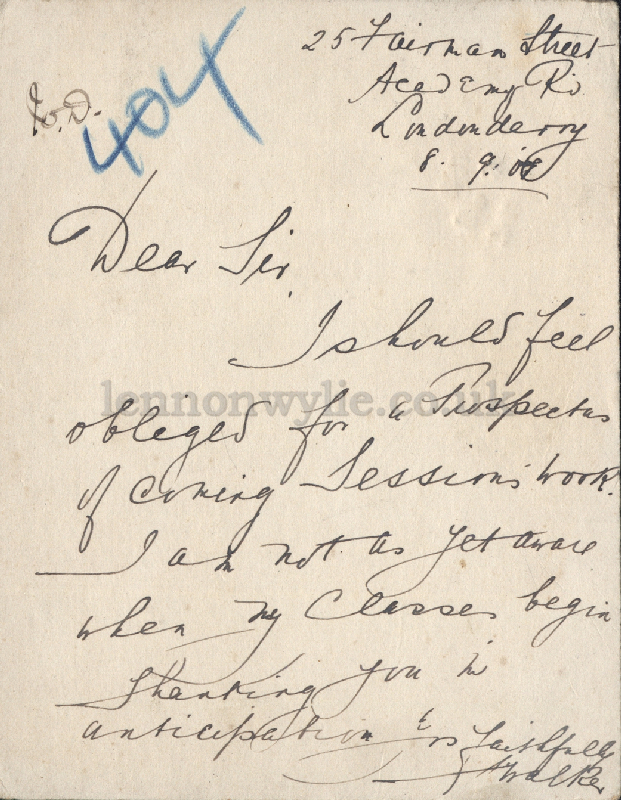 25 Fairman Street
Academy Rd.
Londonderry
8. 9. 08
404
Dear Sir,
I should feel
obliged for a Prospectus
of coming Sessions' work.
I am not as yet aware
when my Classes begin
Thanking you in
anticipation
Yrs faithfully
Walker
lennonwylie.co.uk